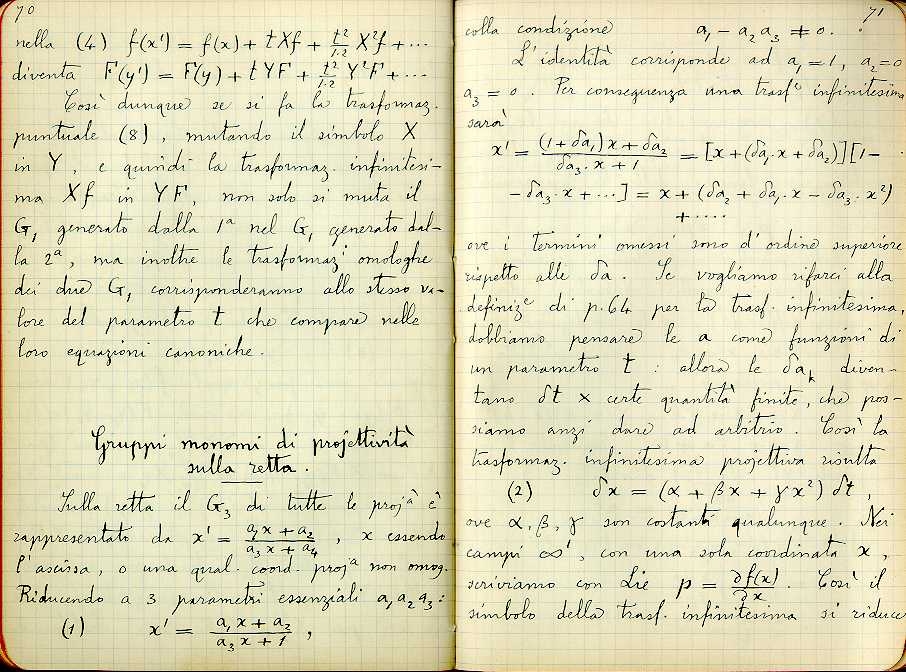 70
nella (4) f(x') = f(x) + tXf + t²/1·2 X²f + ...
diventa F(y') = F(y) + tYF + t²/1·2 Y²F + ...
Così dunque se si fa la trasformaz.
puntuale (8), mutando il simbolo X
in Y, e quindi la trasformaz. infinitesi-
ma Xf in YF, non solo si muta il
G₁ generato dalla 1ª nel G₁ generato dal-
la 2ª, ma inoltre le trasformazⁱ omologhe
dei due G₁ corrisponderanno allo stesso va-
lore del parametro t che compare nelle
loro equazioni canoniche.
Gruppi monomi di projettività
sulla retta.
Sulla retta il G₃ di tutte le projᵃ è
rappresentato da x' = (a₁x + a₂)/(a₃x + a₄), x essendo
l'ascissa, o una qual. coord. projᵃ non omog.
Riducendo a 3 parametri essenziali a₁a₂a₃:
(1) x' = (a₁x + a₂)/(a₃x + 1),
71
colla condizione a₁ - a₂a₃ ≠ 0.
L'identità corrisponde ad a₁ = 1, a₂ = 0
a₃ = 0. Per conseguenza una trasfᵉ infinitesima
sarà
x' = ((1 + δa₁)x + δa₂)/(δa₃·x + 1) = [x + (δa₁·x + δa₂)][1 -
- δa₃·x + ...] = x + (δa₂ + δa₁·x - δa₃·x²)
+ ....
ove i termini omessi sono d'ordine superiore
rispetto alle δa. Se vogliamo rifarci alla
definizᵉ di p. 64 per la trasf. infinitesima,
dobbiamo pensare le a come funzioni di
un parametro t: allora le δaₖ diven-
tano δt × certe quantità finite, che pos-
siamo anzi dare ad arbitrio. Così la
trasformaz. infinitesima projettiva risulta
(2) δx = (α + βx + γx²) δt,
ove α, β, γ son costanti qualunque. Nei
campi ∞¹, con una sola coordinata x,
scriviamo con Lie p = ∂f(x)/∂x. Così il
simbolo della trasf. infinitesima si riduce